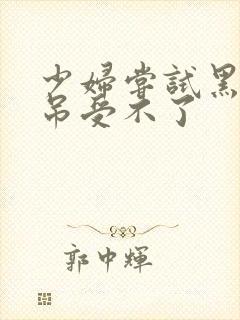 少婦嘗試黑
吊受不了
郭中輝